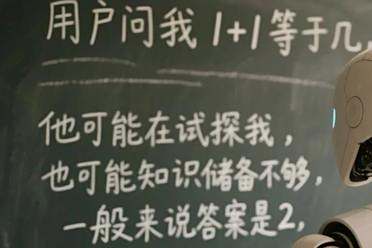 用户问我 1+1等于几,
他可能在试探我,
也可能知识储备不够,
一般来说答案是2,